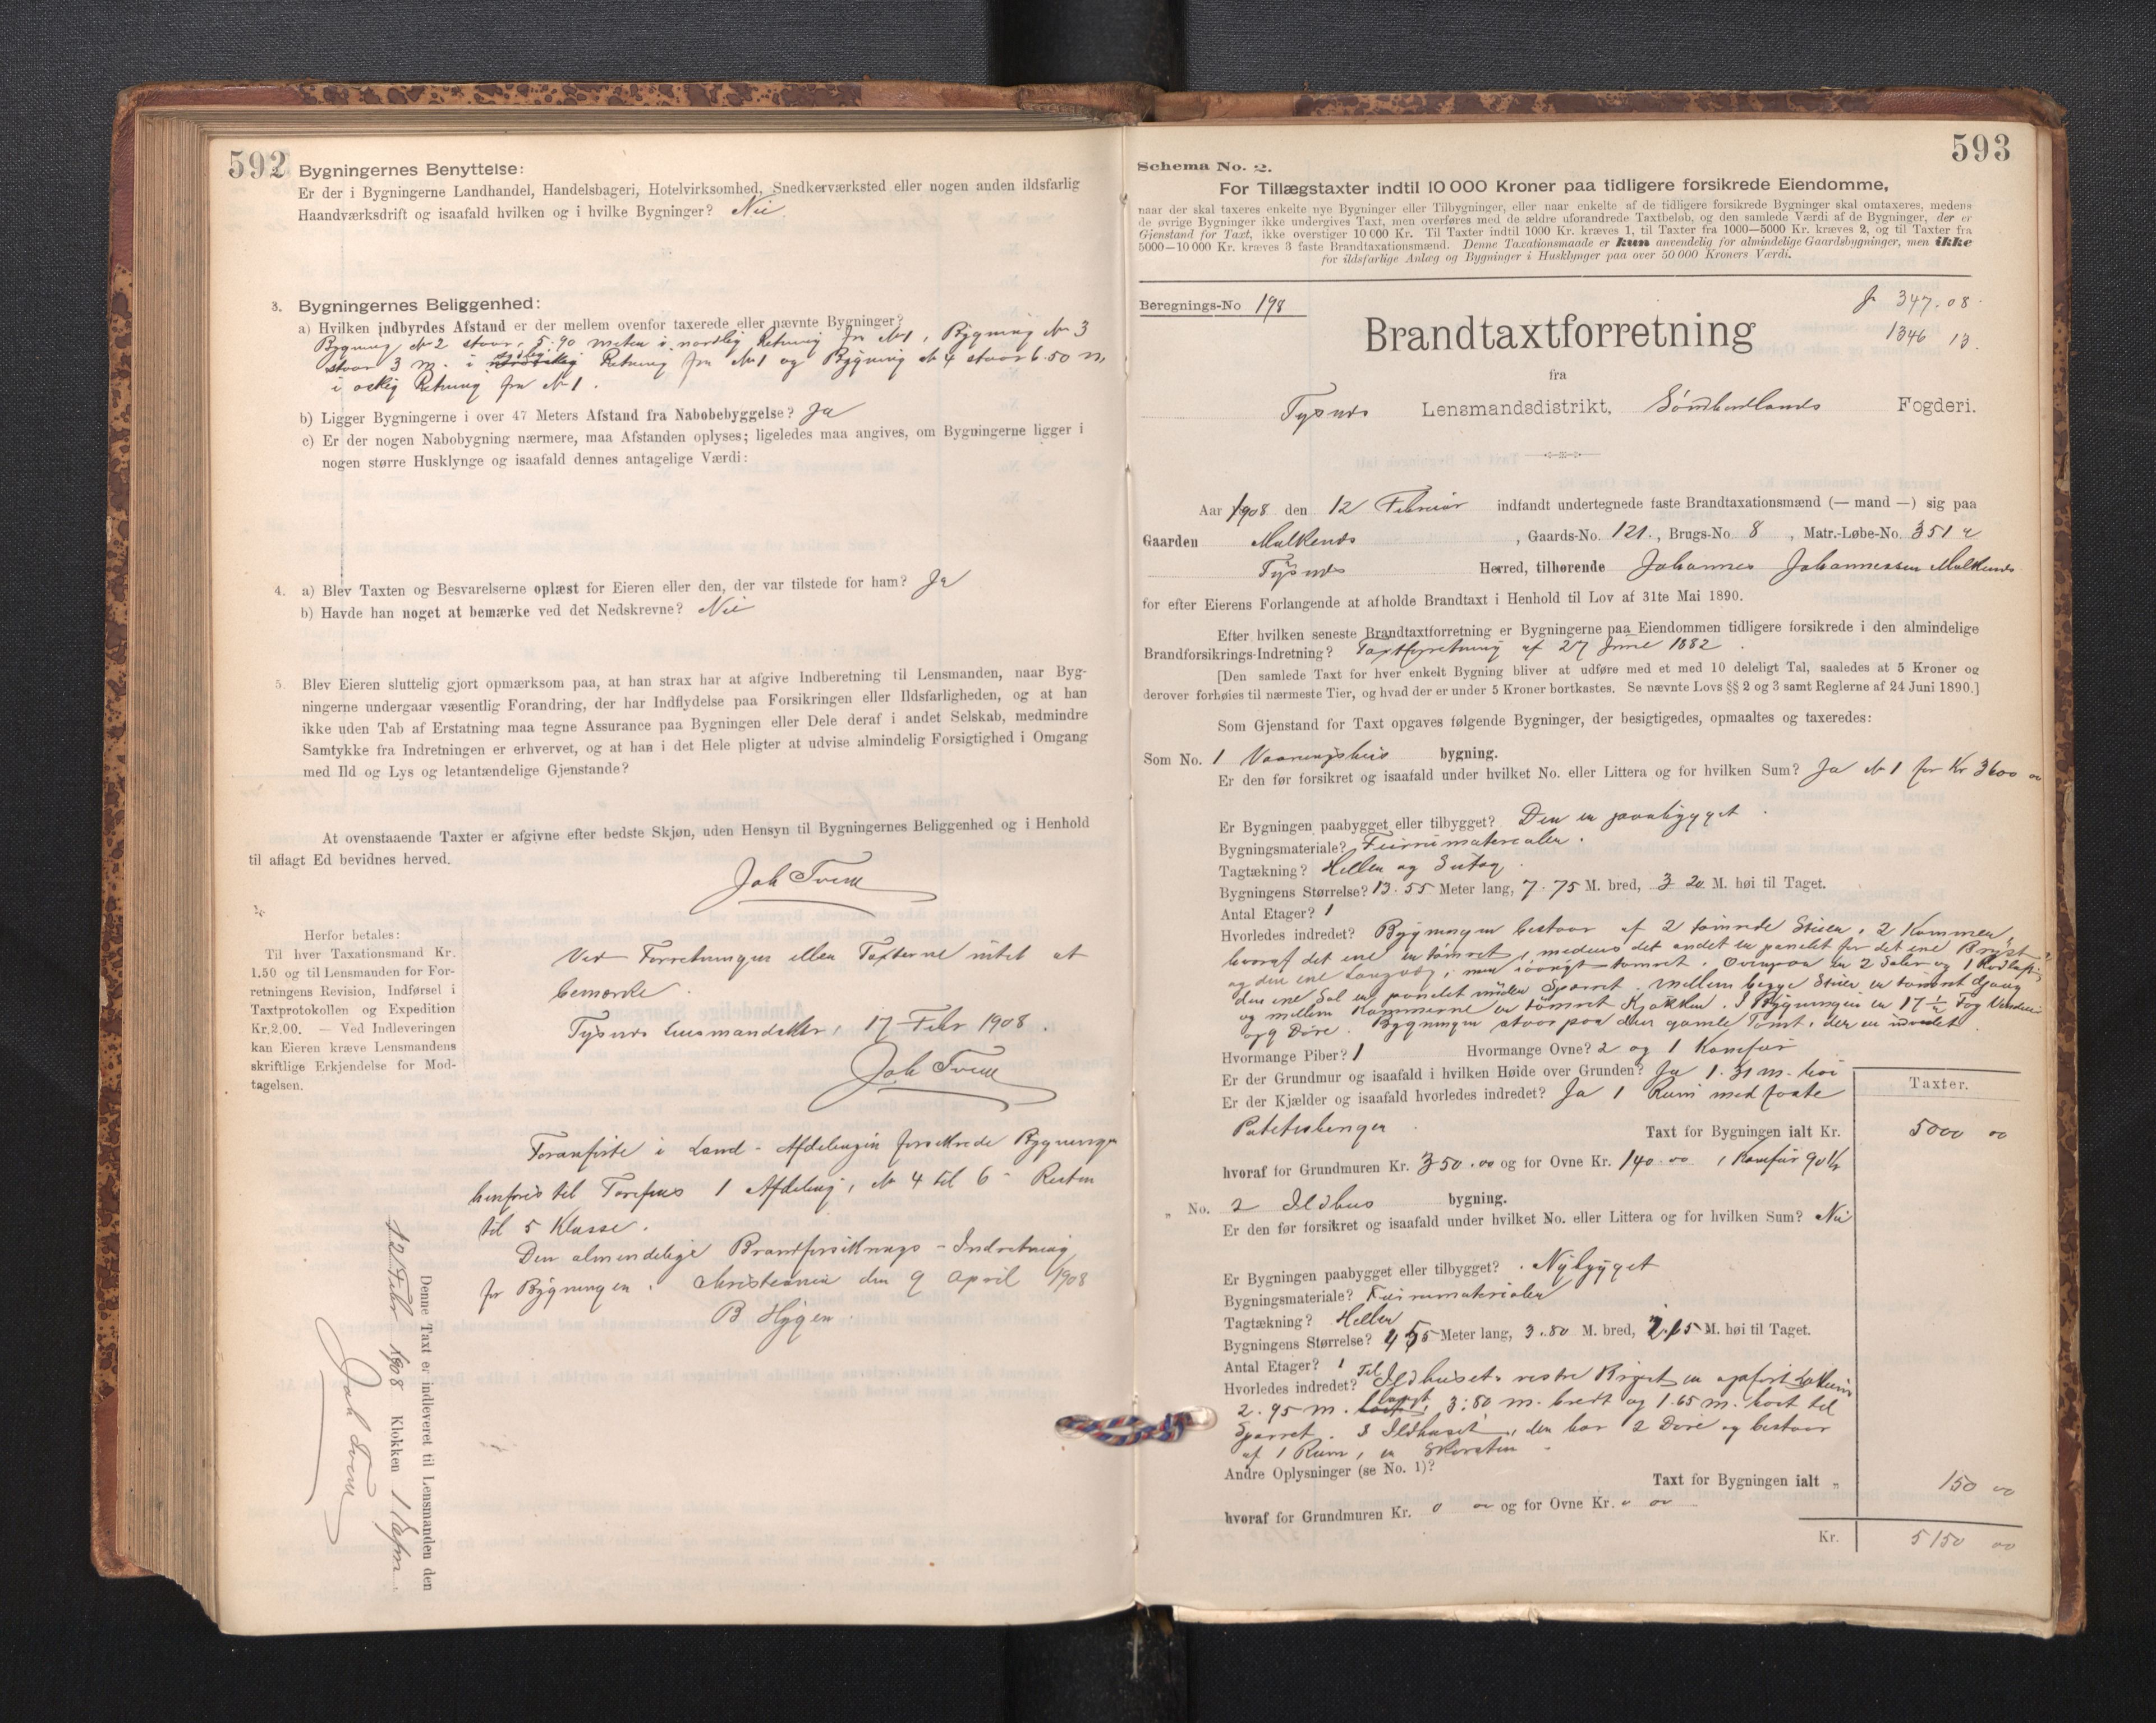 592
Bygningernes Benyttelse:
Er der i Bygningerne Landhandel, Handelsbageri, Hotelvirksomhed, Snedkerværksted eller nogen anden ildsfarlig
Haandværksdrift og isaafald hvilken og i hvilke Bygninger? Nei
3. Bygningernes Beliggenhed:
a) Hvilken indbyrdes Afstand er der mellem ovenfor taxerede eller nævnte Bygninger?
Bygning No 2 staar 5.90 meter i nordlig Retning fra No 1, Bygning No 3
staar 3 m. i Retning fra No 1 og Bygning No 4 staar 6.50 m
i Retning fra No 1.
b) Ligger Bygningerne i over 47 Meters Afstand fra Nabobebyggelse? Ja
c) Er der nogen Nabobygning nærmere, maa Afstanden oplyses; ligeledes maa angives, om Bygningerne ligger i
nogen større Husklynge og isaafald dennes antagelige Værdi:
4. a) Blev Taxten og Besvarelserne oplæst for Eieren eller den, der var tilstede for ham? Ja
b) Havde han noget at bemærke ved det Nedskrevne? Nei
5. Blev Eieren sluttelig gjort opmærksom paa, at han strax har at afgive Indberetning til Lensmanden, naar Byg-
ningerne undergaar væsentlig Forandring, der har Indflydelse paa Forsikringen eller Ildsfarligheden, og at han
ikke uden Tab af Erstatning maa tegne Assurance paa Bygningen eller Dele deraf i andet Selskab, medmindre
Samtykke fra Indretningen er erhvervet, og at han i det Hele pligter at udvise almindelig Forsigtighed i Omgang
med Ild og Lys og letantændelige Gjenstande?
At ovenstaaende Taxter er afgivne efter bedste Skjøn, uden Hensyn til Bygningernes Beliggenhed og i Henhold
til aflagt Ed bevidnes herved.
Joh Tveit
Herfor betales:
Til hver Taxationsmand Kr.
1.50 og til Lensmanden for For-
retningens Revision, Indførsel i
Taxtprotokollen og Expedition
Kr. 2.00. — Ved Indleveringen
kan Eieren kræve Lensmandens
skriftlige Erkjendelse for Mod-
tagelsen.
Ved Forretningen eller Taxterne intet at
bemærke.
Tysnes Lensmandsktr, 17 Febr 1908.
Joh Tveit
Foranførte i Land-Afdelingen forsikrede Bygninger
henføres til 1 Afdeling, No 4 til 6 Resten
til 5 Klasse.
Den almindelige Brandforsikrings-Indretning
for Bygninger. Christiania den 9 April 1908
B Hygen
Denne Taxt er indleveret til Lensmanden den
12 Febr 1908 Klokken 1
Joh Tveit
593
Schema No. 2.
For Tillægstaxter indtil 10 000 Kroner paa tidligere forsikrede Eiendomme,
naar der skal taxeres enkelte nye Bygninger eller Tilbygninger, eller naar enkelte af de tidligere forsikrede Bygninger skal omtaxeres, medens
de øvrige Bygninger ikke undergives Taxt, men overføres med de ældre uforandrede Taxtbeløb, og den samlede Værdi af de Bygninger, der er
Gjenstand for Taxt, ikke overstiger 10 000 Kr. Til Taxter indtil 1000 Kr. kræves 1, til Taxter fra 1000—5000 Kr. kræves 2, og til Taxter fra
5000—10 000 Kr. kræves 3 faste Brandtaxationsmænd. Denne Taxationsmaade er kun anvendelig for almindelige Gaardsbygninger, men ikke
for ildsfarlige Anlæg og Bygninger i Husklynger paa over 50 000 Kroners Værdi.
Beregnings-No 198
J 347.08
1346 13.
Brandtaxtforretning
fra
Tysnes Lensmandsdistrikt, Søndhordlands Fogderi.
Aar 1908 den 12 Februar indfandt undertegnede faste Brandtaxationsmænd (— mand —) sig paa
Gaarden Malkenes, Gaards-No. 121., Brugs-No 8, Matr.-Løbe-No. 351 a
Tysnes Herred, tilhørende Johannes Johannessen Malkenes
for efter Eierens Forlangende at afholde Brandtaxt i Henhold til Lov af 31te Mai 1890.
Efter hvilken seneste Brandtaxtforretning er Bygningerne paa Eiendommen tidligere forsikrede i den almindelige
Brandforsikrings-Indretning? Taxtforretning af 27 Juni 1882
[Den samlede Taxt for hver enkelt Bygning bliver at udføre med et med 10 deleligt Tal, saaledes at 5 Kroner og
derover forhøies til nærmeste Tier, og hvad der er under 5 Kroner bortkastes. Se nævnte Lovs §§ 2 og 3 samt Reglerne af 24 Juni 1890.]
Som Gjenstand for Taxt opgaves følgende Bygninger, der besigtigedes, opmaaltes og taxeredes:
Som No. 1 Vaaningshus bygning.
Er den før forsikret og isaafald under hvilket No. eller Littera og for hvilken Sum? Ja No 1 for Kr 3600 00
Er Bygningen paabygget eller tilbygget? Den er paabygget.
Bygningsmateriale? Furumaterialer.
Tagtækning? Heller og
Bygningens Størrelse? 13.55 Meter lang, 7.75 M. bred, 3 20 M. høi til Taget.
Antal Etager? 1
Hvorledes indredet? Bygningen bestaar af 2 tømrede Stuer, 2 Kammer,
hvoraf det ene er tømret, medens det andet er panelet for det ene Bryst
og den ene Langvæg, men iøvrigt tømret. Ovenpaa er 2 Saler og 1
den ene Sal er panelet under Sparret. Mellem begge Stuer er tømret Gang
og mellem Kammerne er tømret Kjøkken. I Bygningen er 17 1/2 Fag Vinduer
og 9 Døre. Bygningen staar paa den gamle Tomt, der er udvidet.
Hvormange Piber? 1 Hvormange Ovne? 2 og 1 Komfur
Er der Grundmur og isaafald i hvilken Høide over Grunden? Ja 1.31 m. høi
Er der Kjælder og isaafald hvorledes indredet? Ja 1 Rum med faste
Potetesbenger.
Taxter.
Taxt for Bygningen ialt Kr. 5000 00
hvoraf for Grundmuren Kr. 350.00 og for Ovne Kr. 140.00 1 Komfur 90 Kr
„ No. 2 Ildhus bygning.
Er den før forsikret og isaafald under hvilket No. eller Littera og for hvilken Sum? Nei
Er Bygningen paabygget eller tilbygget? Nybygget
Bygningsmateriale? Furumaterialer
Tagtækning? Heller
Bygningens Størrelse? 4 55 Meter lang, 3.80 M. bred, 2.15 M. høi til Taget.
Antal Etager? 1
Hvorledes indredet? Til Ildhusets vestre Bryst er opført
2.95 m. langt, 3.80 m. bredt og 1.65 m. høit til
Sparret. I Ildhuset, der har 2 Døre og bestaar
af 1 Rum, er Skorsten.
Andre Oplysninger (se No. 1)?
Taxt for Bygningen ialt „ 150 00
hvoraf for Grundmuren Kr. 0 00 og for Ovne Kr. 0 00
Kr. 5150 00